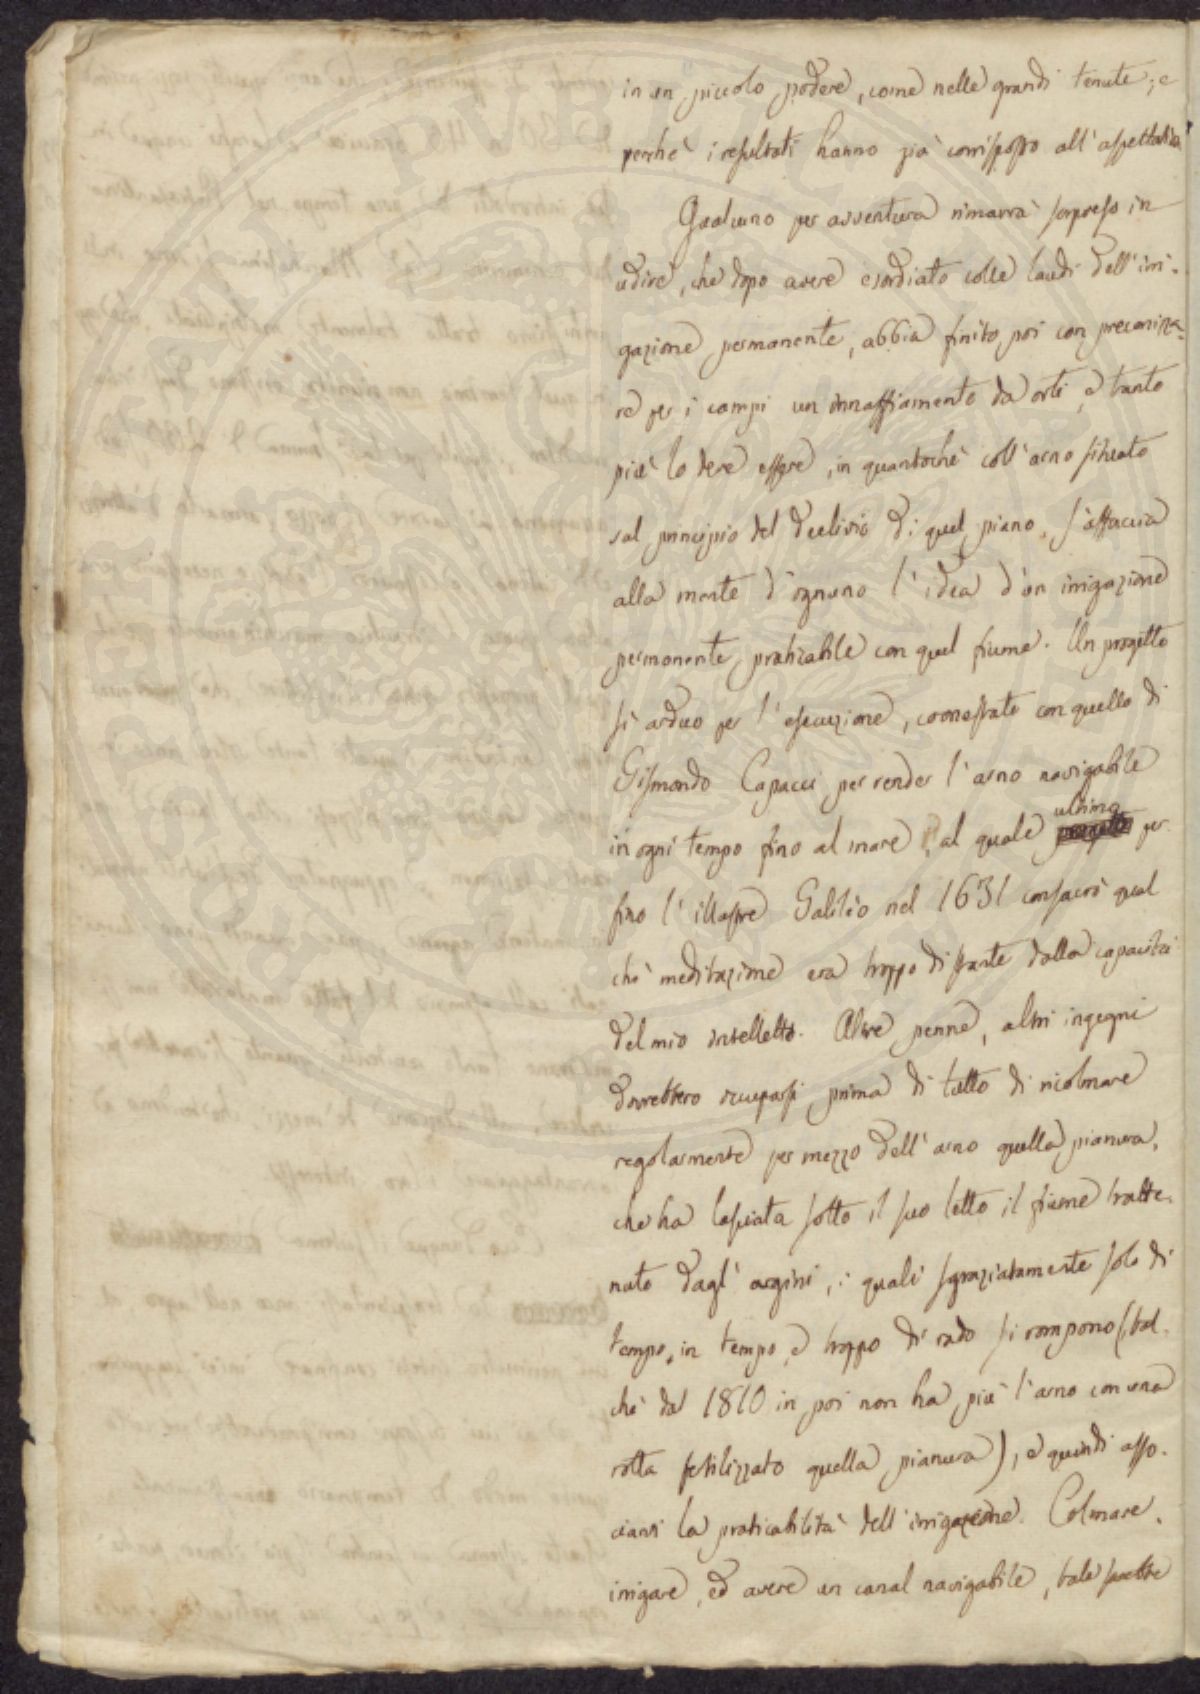 in un piccolo podere, come nelle grandi tenute; e
perchè i resultati hanno già corrisposto all'aspettativa
Qualcuno per avventura rimarrà sorpreso in
udire, che dopo avere esordiato colle laudi dell'irri-
gazione permanente, abbia finito poi con preconizza-
re per i campi un innaffiamento da orti, e tanto
più lo deve essere, in quantochè coll'arno situato
sul principio del declivio di quel piano, s'affaccia
alla mente d'ognuno l'idea d'un irrigazione
permanente, praticabile con quel fiume. Un progetto
sì arduo per l'esecuzione, connestato con quello di
Gismondo Capacci, per render l'arno navigabile
in ogni tempo fino al mare, al quale ultimo per
fino l'illustre Galilèo nel 1631 consacrò qual
chè meditazione era troppo distante dalla capacità
del mio intelletto. Altre penne, altri ingegni
dovrebbero occuparsi prima di tutto di ricolmare
regolarmente per mezzo dell'arno quella pianura,
che ha lasciata sotto il suo letto il fiume tratte-
nuto dagl'argini, i quali sgraziatamente solo di
tempo, in tempo, e troppo di rado si rompono (tal-
chè dal 1810 in poi non ha più l'arno con una
rotta fertilizzato quella pianura), e quindi asso-
ciarvi la praticabilità dell'irrigazione. Colmare,
irrigare, ed avere un canal navigabile, tale sarebbe